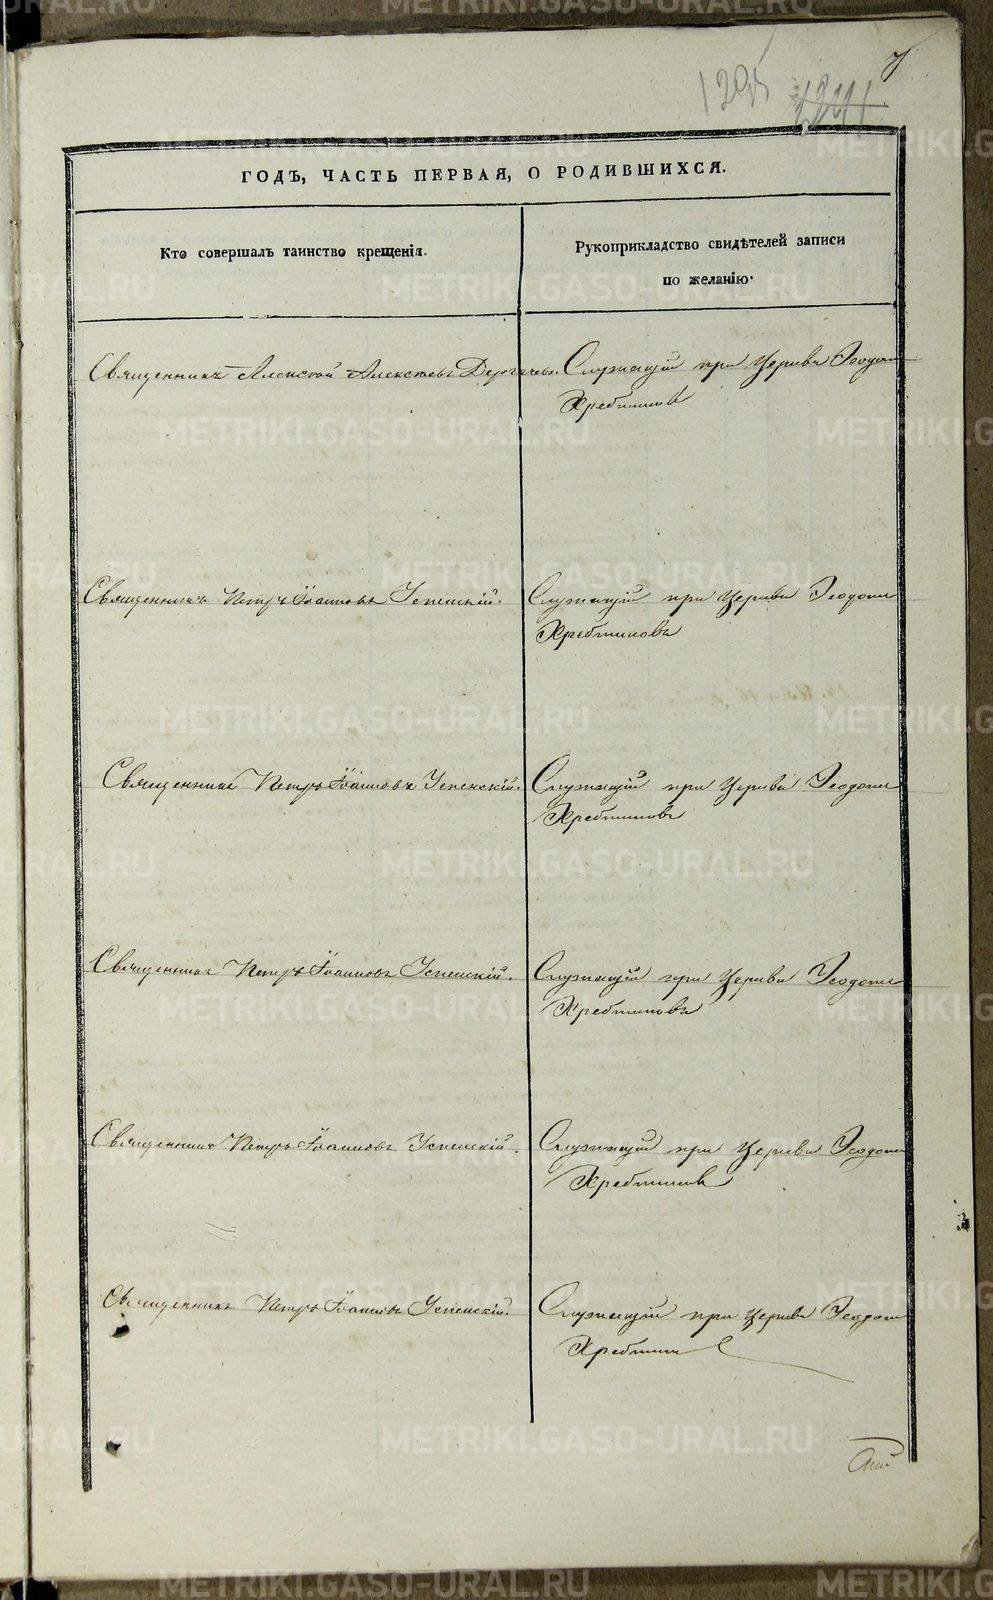 7
1295
ГОДЪ, ЧАСТЬ ПЕРВАЯ, О РОДИВШИХСЯ.
Кто совершалъ таинство крещенія.
Рукоприкладство свидѣтелей записи
по желанію.
Священникъ Алексѣй Алексѣевъ Дерягинъ.
Служащій при Церкви Ѳеодоси
Хребтиковъ
Священникъ Петръ Іоанновъ Успенскій.
Служащій при Церкви Ѳеодоси
Хребтиковъ
Священникъ Петръ Іоанновъ Успенскій.
Служащій при Церкви Ѳеодоси
Хребтиковъ
Священникъ Петръ Іоанновъ Успенскій.
Служащій при Церкви Ѳеодоси
Хребтиковъ
Священникъ Петръ Іоанновъ Успенскій.
Служащій при Церкви Ѳеодоси
Хребтиковъ
Священникъ Петръ Іоанновъ Успенскій.
Служащій при Церкви Ѳеодоси
METRIKI.GASO-URAL.RU